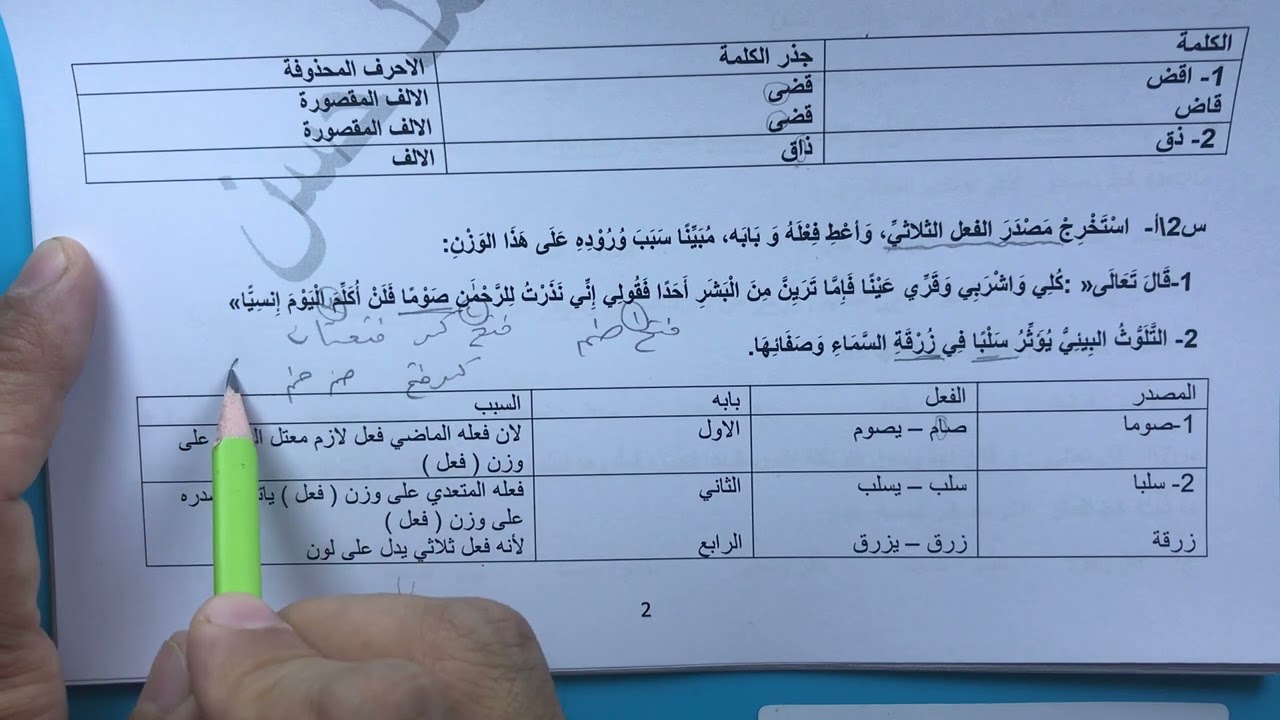 الكلمة جذر الكلمة الاحرف المحذوفة
1- اقض قضى الالف المقصورة
قاض قضى الالف المقصورة
2- ذق ذاق الالف
س2\أ- اسْتَخْرِجْ مَصْدَرَ الفعل الثلاثيِّ، وَأعْطِ فِعْلَهُ وَ بَابَه، مُبَيِّنًا سَبَبَ وُرُوْدِهِ عَلَى هَذَا الوَزْنِ:
1-قَالَ تَعَالَى« :كُلِي وَاشْرَبِي وَقَرِّي عَيْنًا فَإِمَّا تَرَيِنَّ مِنَ الْبَشَرِ أَحَدًا فَقُولِي إِنِّي نَذَرْتُ لِلرَّحْمَٰنِ صَوْمًا فَلَنْ أُكَلِّمَ الْيَوْمَ إِنسِيًّا»
فتح ضم فتح كسر فتحتان
2- التَّلَوُّثُ البِيئِيُّ يُؤَثِّرُ سَلْبًا فِي زُرْقَةِ السَّمَاءِ وَصَفَائِهَا.
كسر فتح ضم ضم
المصدر الفعل بابه السبب
1-صوما صام – يصوم الاول لان فعله الماضي فعل لازم معتل على
وزن ( فعل )
2- سلبا سلب – يسلب الثاني فعله المتعدي على وزن ( فعل )
على وزن ( فعل )
زرقة زرق – يزرق الرابع لأنه فعل ثلاثي يدل على لون
2